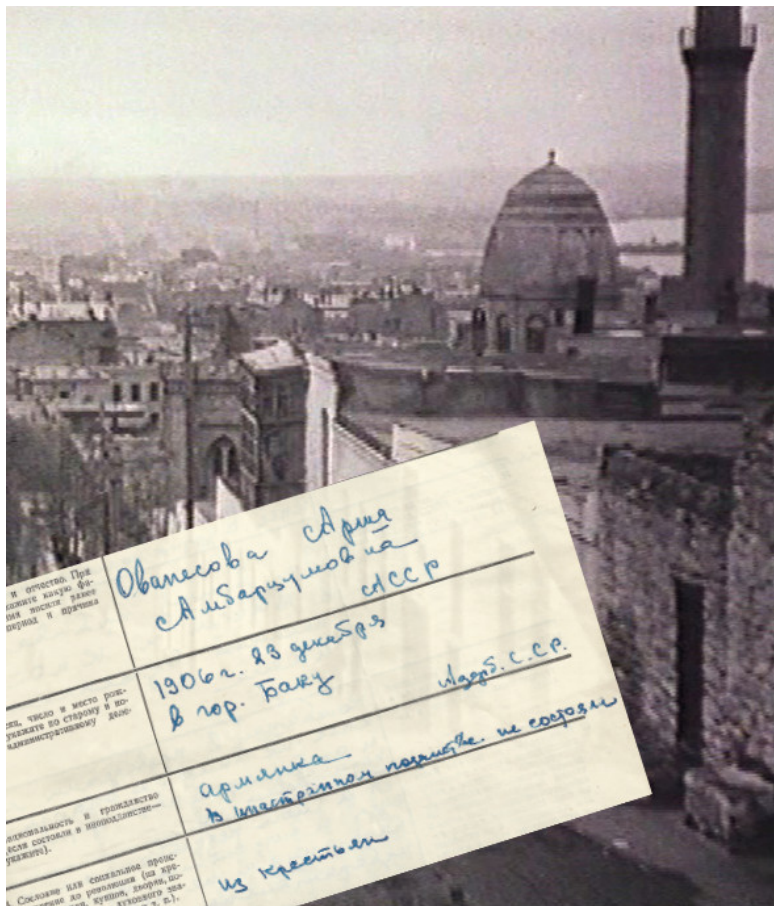 и отчество. При
какую фа-
носили ранее
период и причина
Ованесова
Амбарцумовна
АССР
число и место рож-
укажите по старому и но-
административному деле-
1906 г. 23 декабря
в гор. Баку
Азерб. С.С.Р.
и гражданство
если состояли в иноподданстве—
укажите).
армянка
в иностранном не состояли
Сословие или социальное проис-
до революции (из кре-
купцов, дворян, по-
духовного зва-
т. п.).
из крестьян